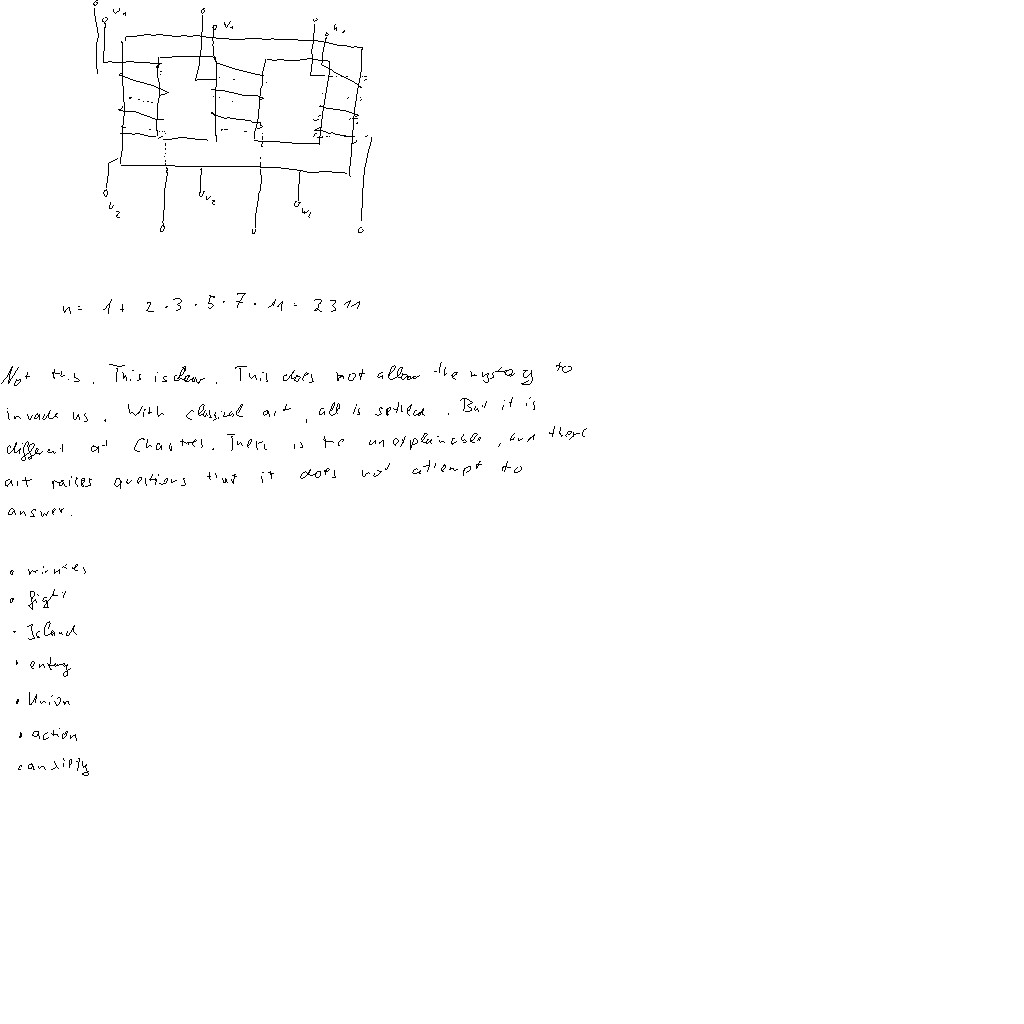 n = 1 + 2 · 3 · 5 · 7 · 11 = 2311
Not this. This is clear. This does not allow the mystery to
invade us. With classical art, all is settled. But it is
different at Chartres. There is the unexplainable, and there
art raises questions that it does not attempt to
answer.
• minutes
• fight
• Island
• entry
• Union
• action
• anxiety